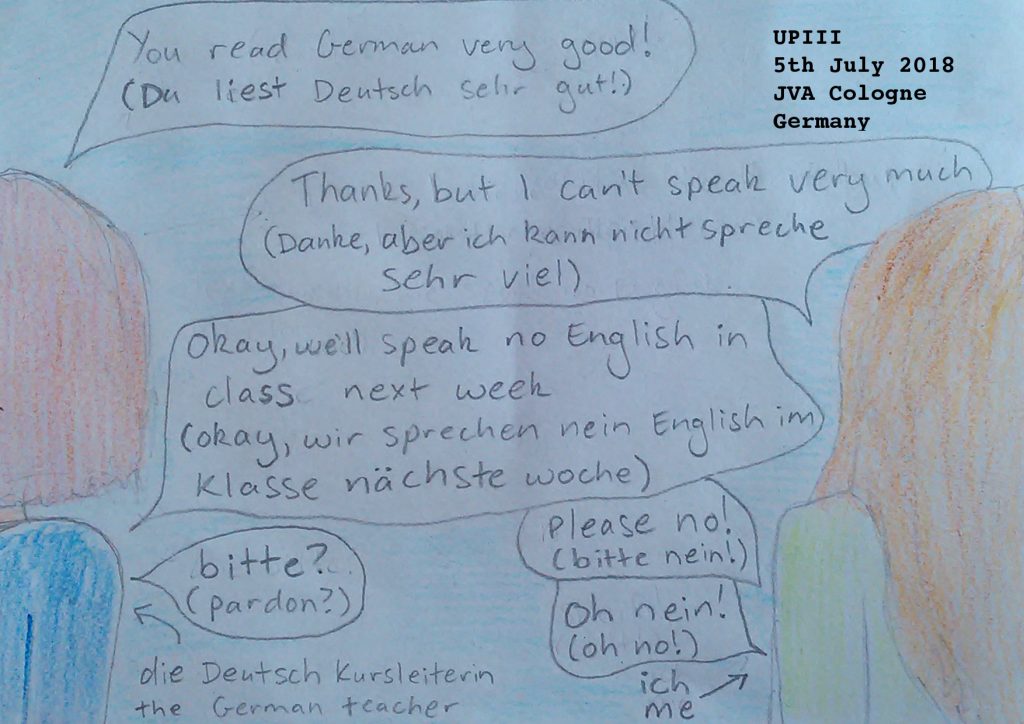 You read German very good!
(Du liest Deutsch sehr gut!)
UPIII
5th July 2018
JVA Cologne
Germany
Thanks, but I can't speak very much
(Danke, aber ich kann nicht spreche
sehr viel)
Okay, we'll speak no English in
class next week
(okay, wir sprechen nein English im
Klasse nächste woche)
please no!
(bitte nein!)
bitte?
(pardon?)
Oh nein!
(oh no!)
die Deutsch Kursleiterin
the German teacher
ich
me